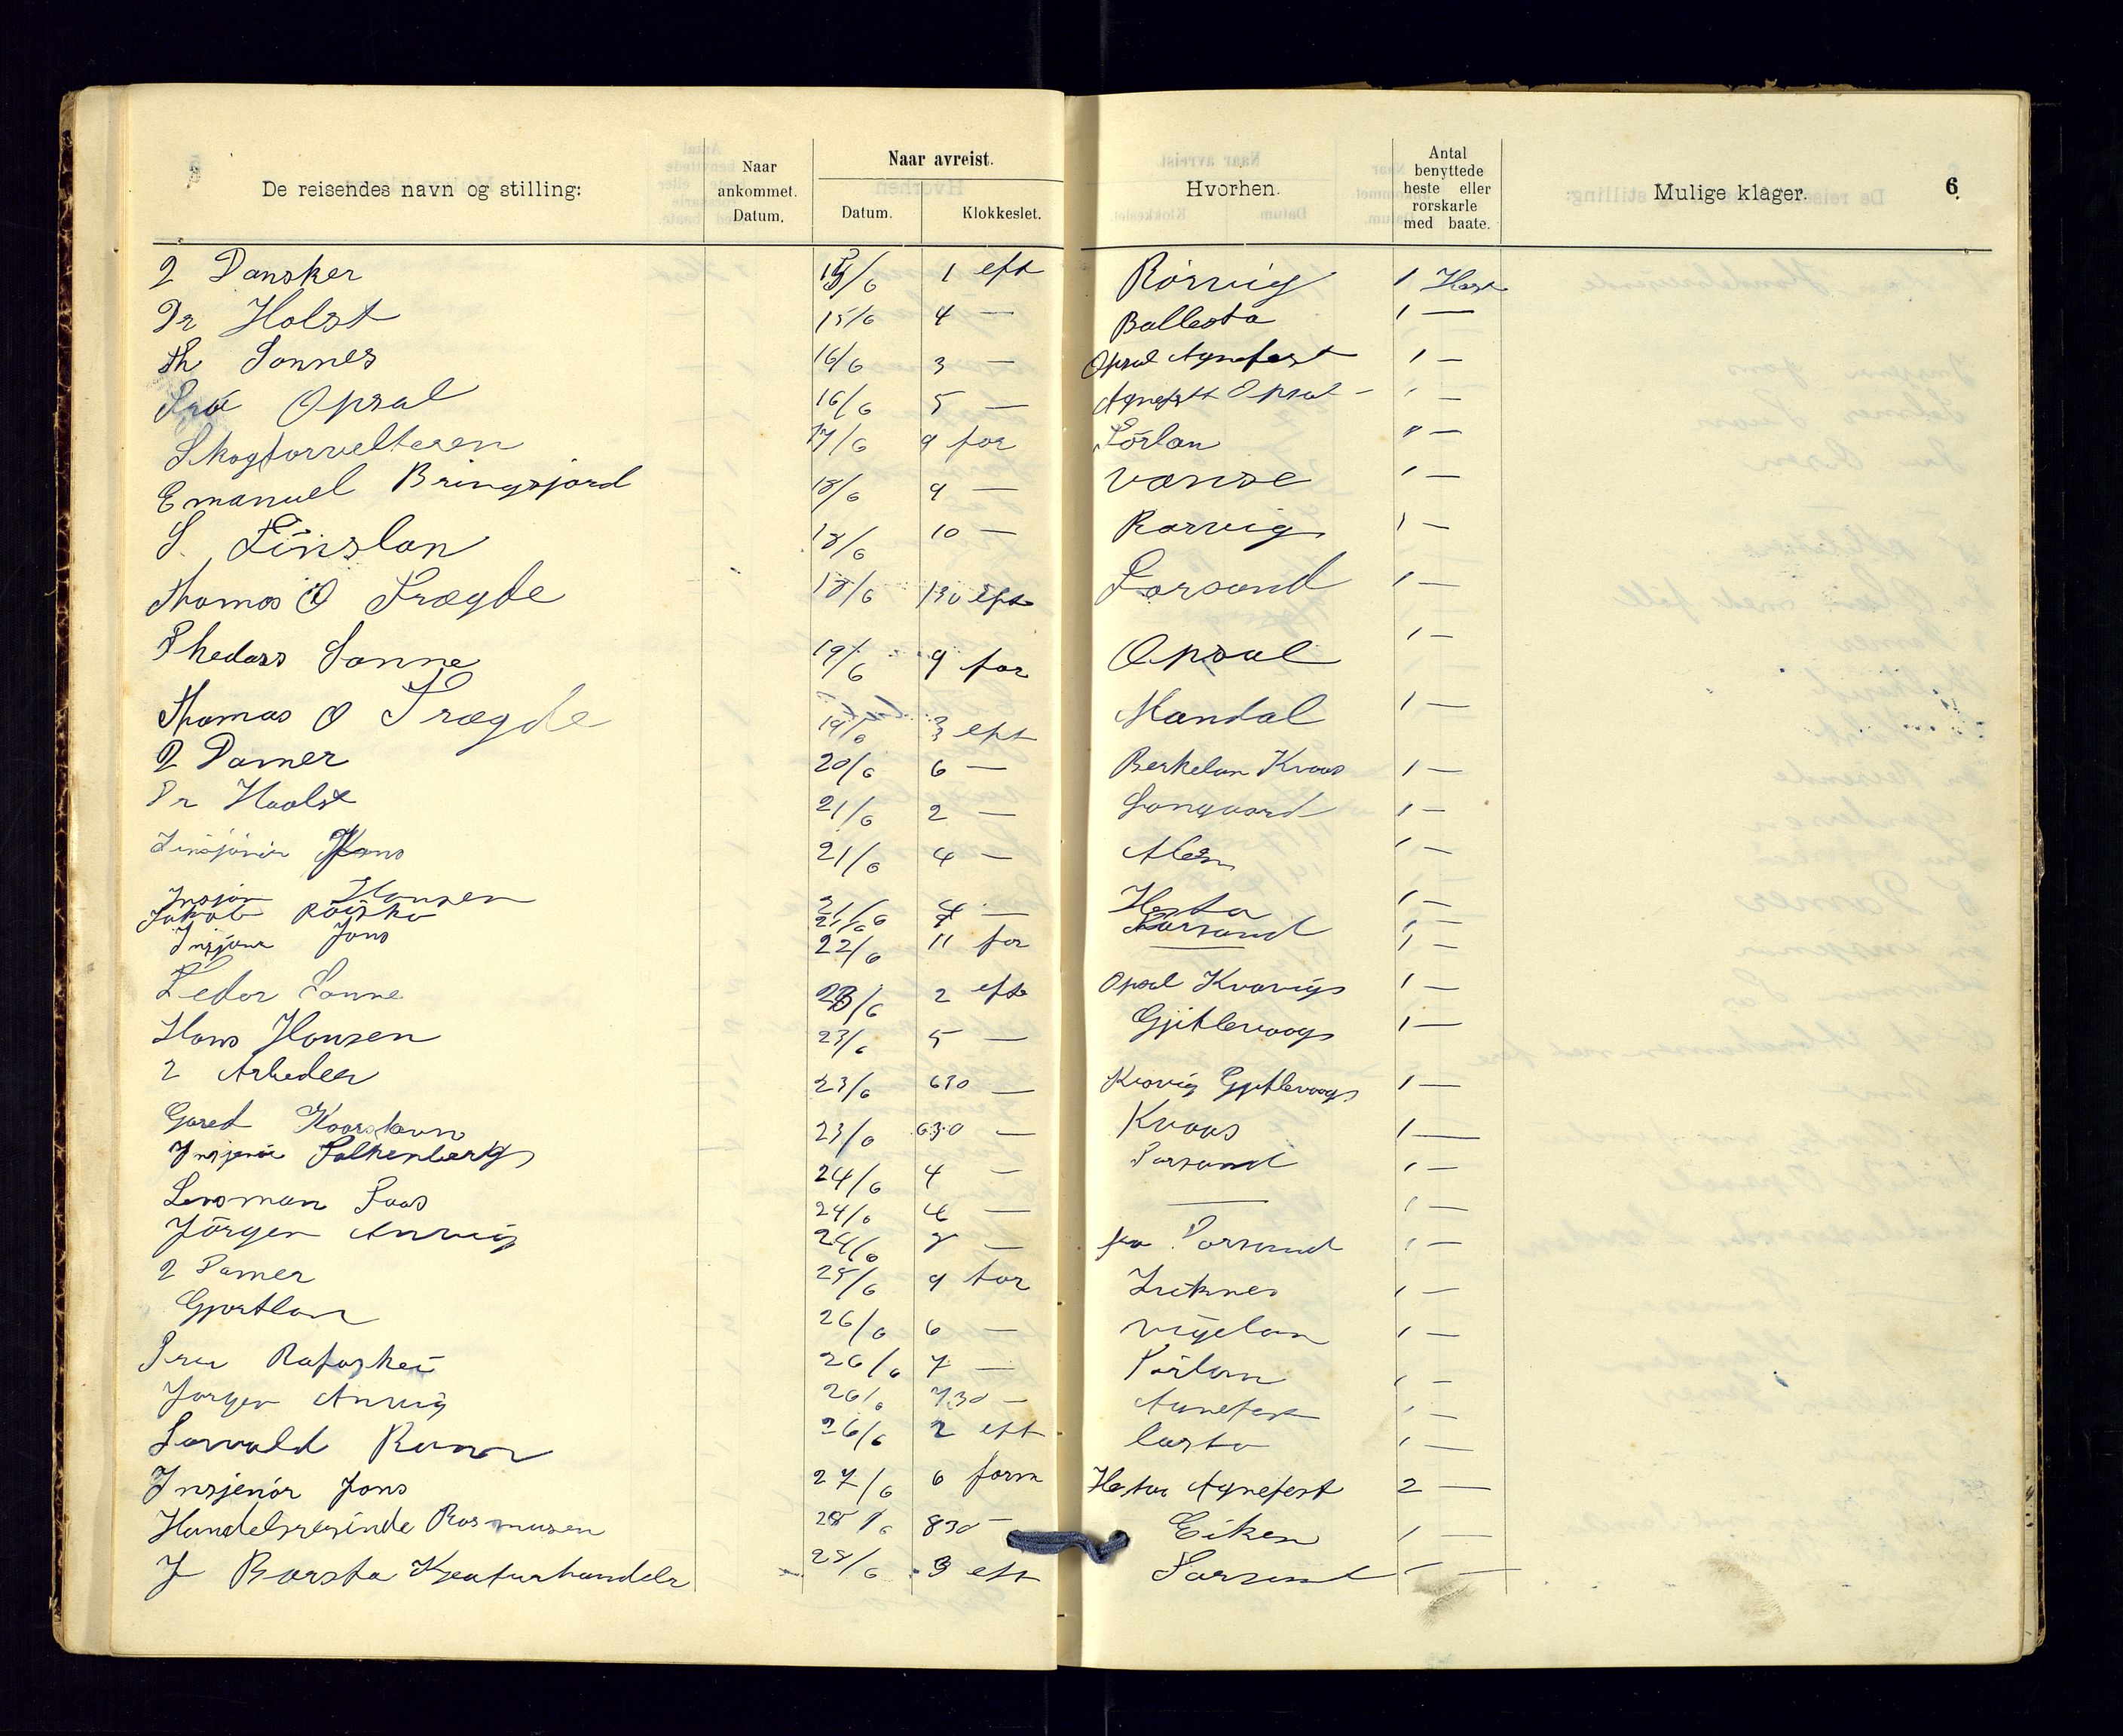 De reisendes navn og stilling: Naar ankommet. Datum. Naar avreist. Datum. Klokkeslet. Hvorhen. Antal benyttede heste eller rorskarle med baate. Mulige klager. 6
2 Dansker 15/6 1 eft Rörvig 1 Hest
Dr Holst 15/6 4 — Ballesta 1 —
Th Sonnes 16/6 3 — Opsal Agnefest 1 —
Opsal 16/6 5 — Opsal 1 —
Skogforvelteren 17/6 9 for Förlan 1 —
Emanuel Bringsjord 18/6 9 — Vanse 1 —
S. 18/6 10 — Rorvig 1 —
Thomas O Trægde 18/6 130 eft Forsand 1 —
Sonne 19/6 9 for Opsal 1 —
Thomas O Trægde 19/6 3 eft Mandal 1 —
2 Damer 20/6 6 — Berkelan Kvaas 1 —
Dr Haalst 21/6 2 — 1 —
21/6 4 — 1 —
Hansen 21/6 — 1 —
Jakob 21/6 — 1 —
Jons 22/6 11 for — 1 —
Fedor Sonne 23/6 2 eft Opsal Kvavigs 1 —
Hans Hansen 23/6 5 — Gjitlevaags 1 —
2 Arbeder 23/6 630 — Kvavig Gjitlevaags 1 —
23/6 630 — Kvaas 1 —
Insjenör Falkenberg 24/6 4 — Forsand 1 —
Lensman Faas 24/6 — — 1 —
Jörgen Anvig 24/6 — fra Forsand 1 —
2 Damer 25/6 9 for 1 —
26/6 6 — Vigelan 1 —
Fru Rafoshei 26/6 7 — Förlan 1 —
Jorgen Anvig 26/6 730 — Agnefest 1 —
26/6 2 eft 1 —
Insjenör Jons 27/6 6 form Agnefest 2 —
Handelsresinde Rosmusen 28/6 830 — Eiken 1 —
J Barsta Kreaturhandelr 28/6 3 eft Forsand — —